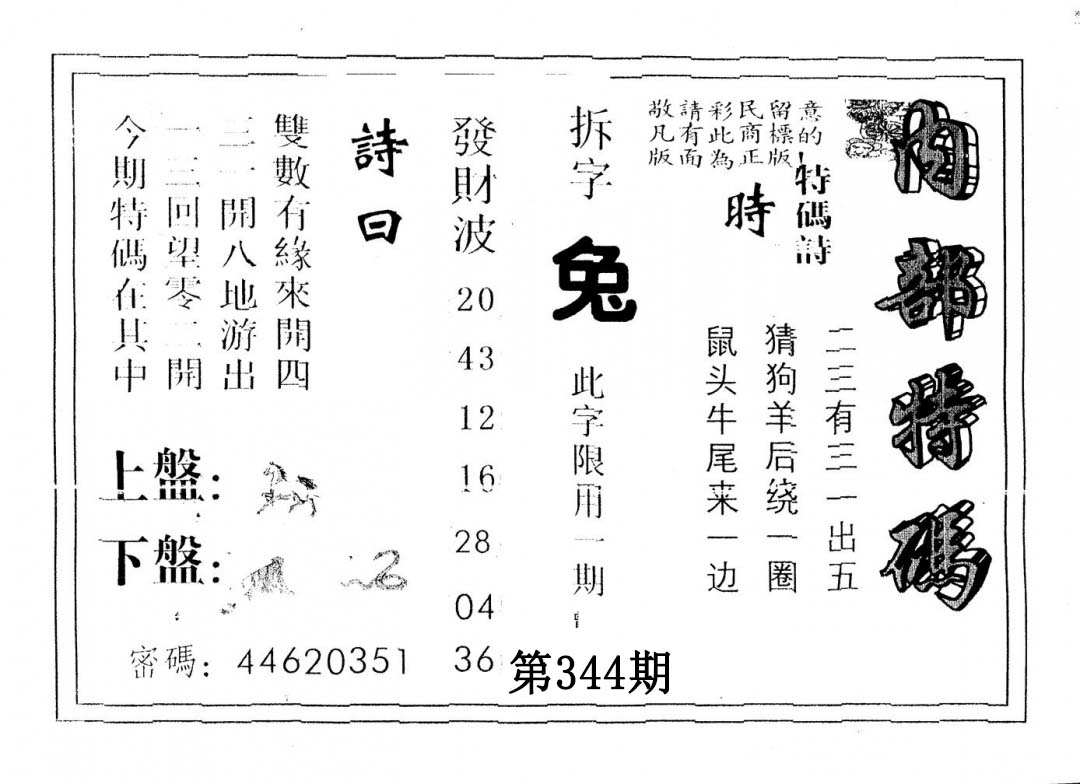 内部特碼
敬請彩民留意
凡有此商標的
版面為正版
特碼詩
時
二三有三一出五
猜狗羊后绕一圈
鼠头牛尾来一边
拆字
兔
此字限用一期
發財波
20
43
12
16
28
04
36
詩曰
雙數有緣來開四
三一開八地游出
一三回望零二開
今期特碼在其中
上盤：
下盤：
2
密碼：44620351
第344期